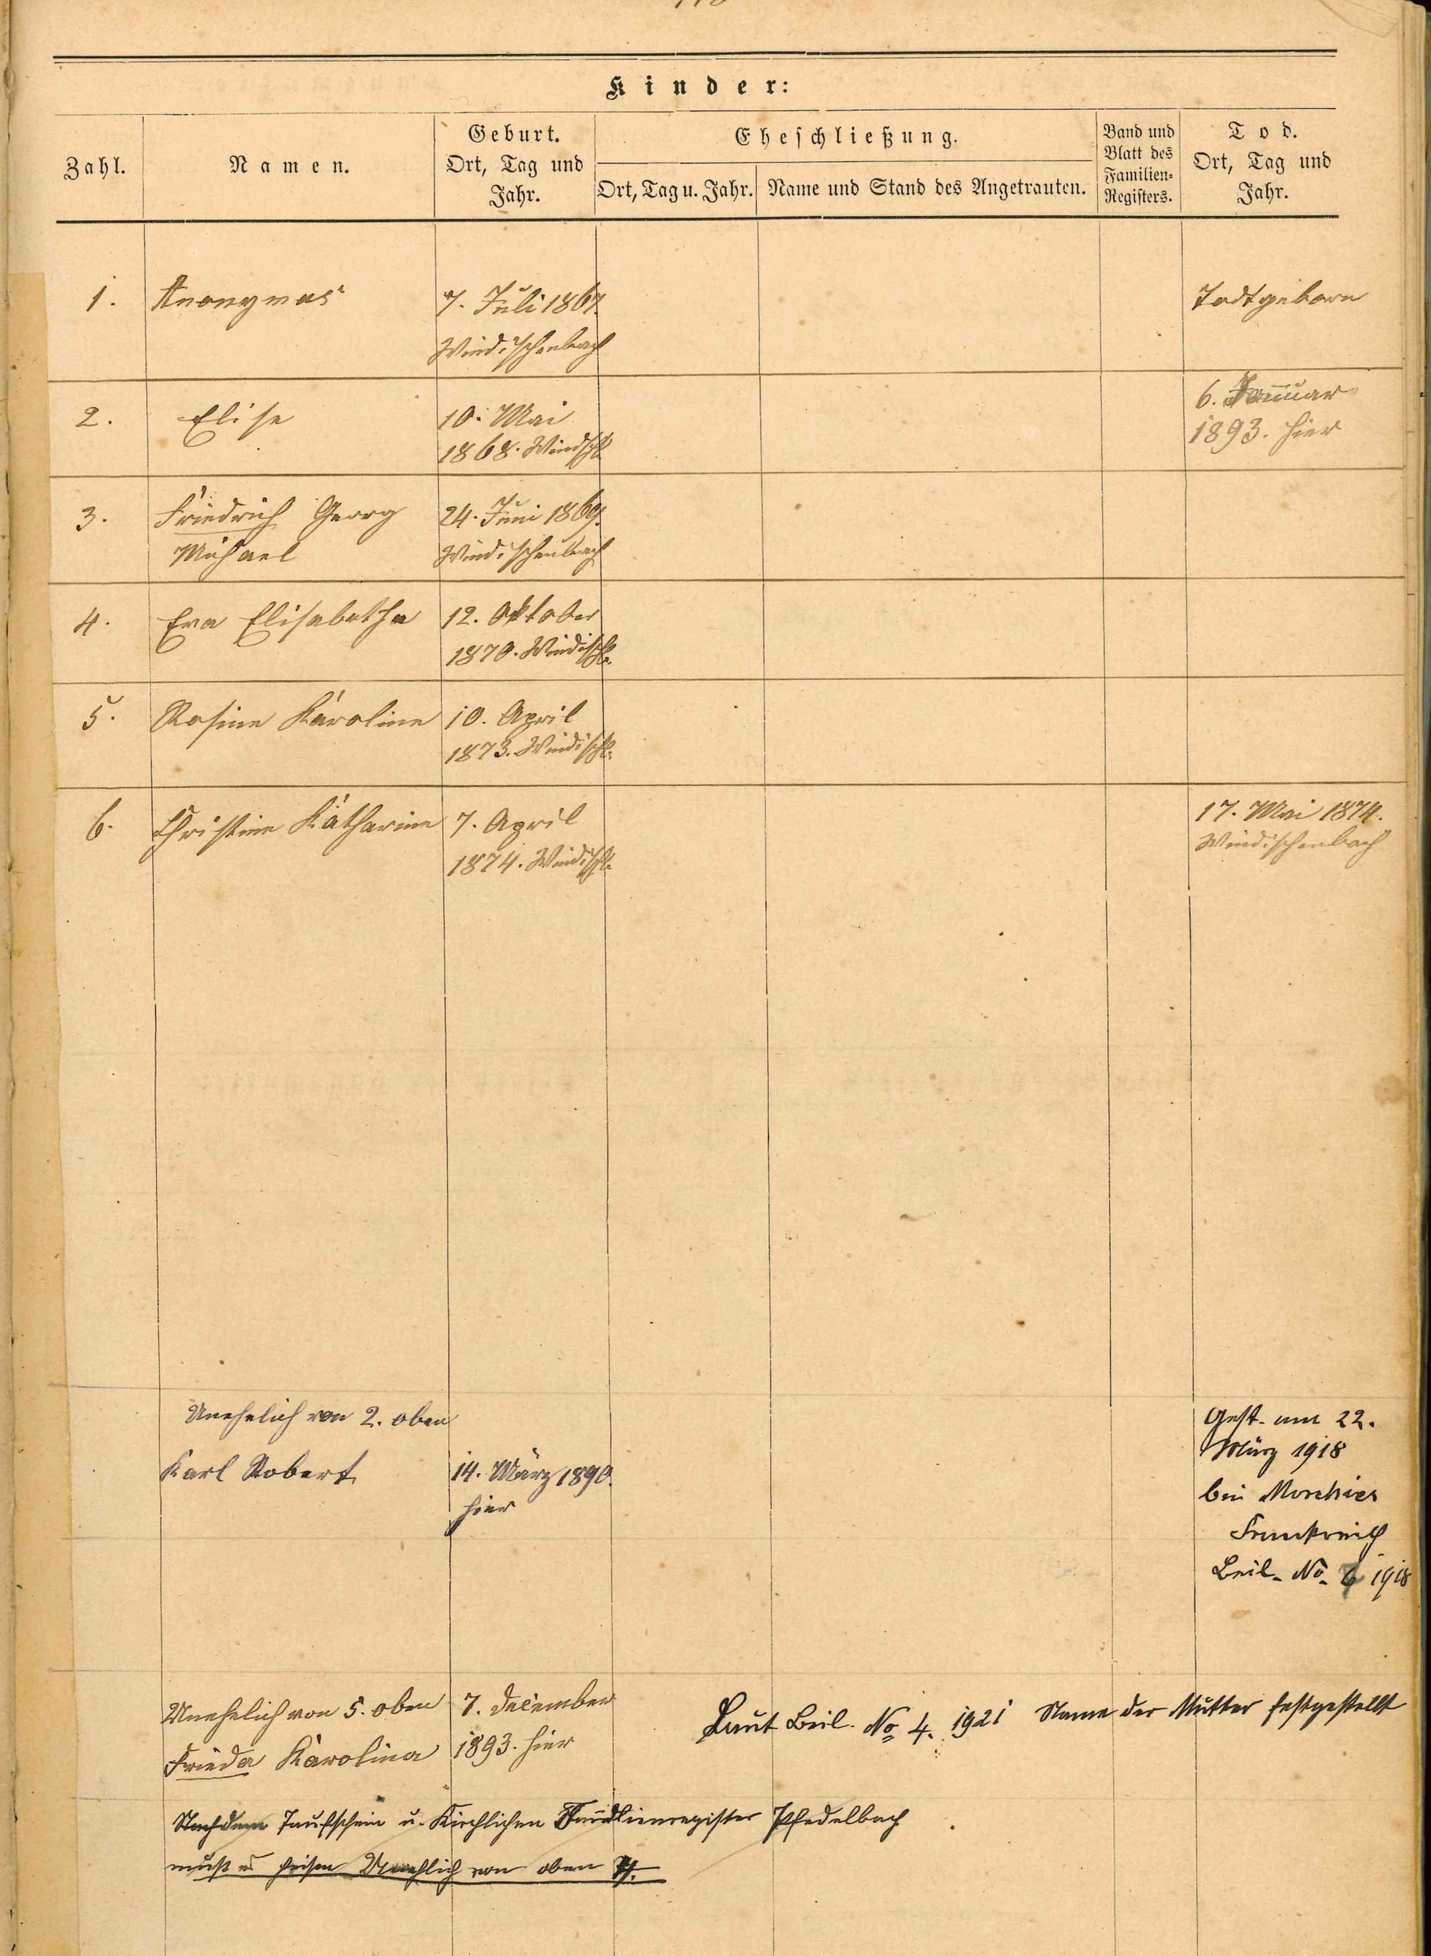 Kinder:
Zahl.
Namen.
Geburt.
Ort, Tag und
Jahr.
Eheschließung.
Ort, Tag u. Jahr.
Name und Stand des Angetrauten.
Band und
Blatt des
Familien-
Registers.
Tod.
Ort, Tag und
Jahr.
1. Anonymus 7. Juli 1867. Todtgeboren
Windischenbach
2. Elise 10. Mai 6. Januar
1868. Windischb. 1893. hier
3. Friedrich Georg 24. Juni 1869.
Michael Windischenbach
4. Eva Elisabetha 12. Oktober
1870. Windischb.
5. Rosine Karoline 10. April
1873. Windischb.
6. Christine Katharine 7. April 17. Mai 1874.
1874. Windischb. Windischenbach
Unehelich von 2. oben Gest. am 22.
März 1918
Karl Robert 14. März 1890.
hier bei Morchies
Frankreich
Beil. No. 1918
Unehelich von 5. oben 7. December Laut Beil. No 4. 1921 Name der Mutter festgestellt
Frieda Karolina 1893. hier
Nach dem Taufschein u. Kirchlichen Familienregister Pfedelbach
muß es heißen Unehlich von oben 4.